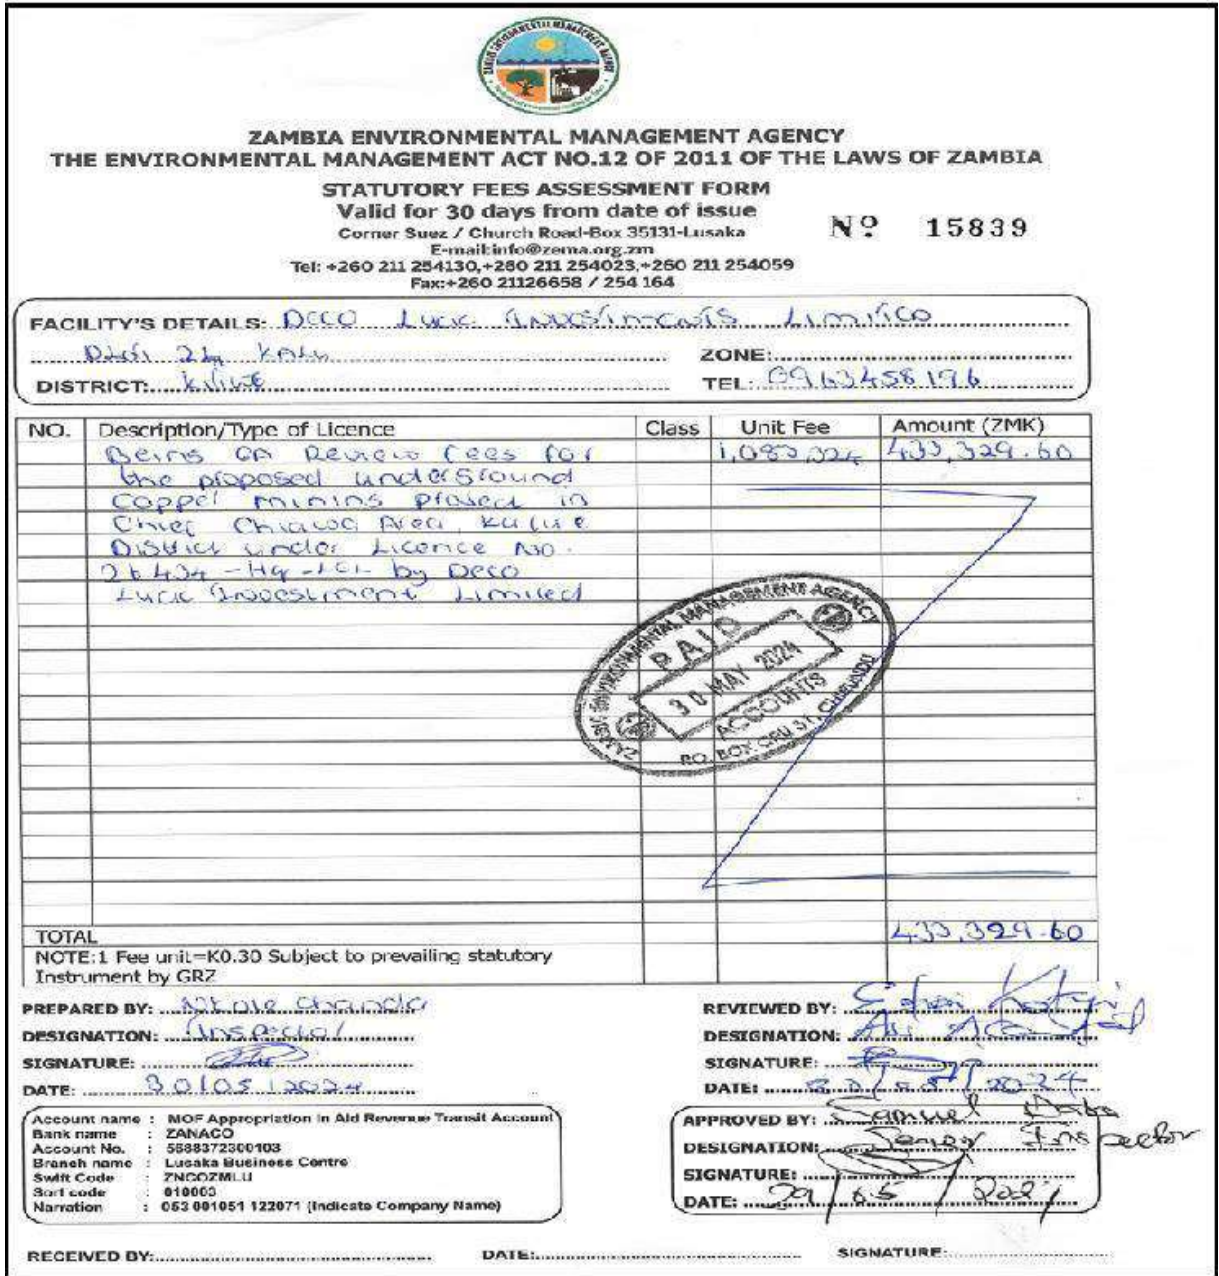 ZAMBIA ENVIRONMENTAL MANAGEMENT AGENCY
THE ENVIRONMENTAL MANAGEMENT ACT NO.12 OF 2011 OF THE LAWS OF ZAMBIA
STATUTORY FEES ASSESSMENT FORM
Valid for 30 days from date of issue
Nº 15839
Corner Suez / Church Road-Box 35131-Lusaka
E-mail:info@zema.org.zm
Tel: +260 211 254130,+260 211 254023,+260 211 254059
Fax:+260 21126658 / 254 164
FACILITY'S DETAILS: Deco Luck Investments Limited
ZONE:
DISTRICT: Kafue TEL: 0963458196
NO. Description/Type of Licence Class Unit Fee Amount (ZMK)
Being Review fees for 433,329.60
the proposed underground
Copper mining project in
Chief Chiawa Area, Kafue
District under Licence No.
26434-HQ-LEL by Deco
Luck Investment Limited
ZAMBIA ENVIRONMENTAL MANAGEMENT AGENCY
PAID
30 MAY 2024
ACCOUNTS
P.O. BOX CRU 37, CHIRUNDU
TOTAL 433,329.60
NOTE:1 Fee unit=K0.30 Subject to prevailing statutory
Instrument by GRZ
PREPARED BY: Chanda
DESIGNATION: Inspector
SIGNATURE:
DATE: 30/05/2024
REVIEWED BY:
DESIGNATION:
SIGNATURE:
DATE: 30/05/2024
Account name : MOF Appropriation In Aid Revenue Transit Account
Bank name : ZANACO
Account No. : 5688372300103
Branch name : Lusaka Business Centre
Swift Code : ZNCOZMLU
Sort code : 010003
Narration : 053 001051 122071 (Indicate Company Name)
APPROVED BY: Samuel
DESIGNATION: Senior Inspector
SIGNATURE:
DATE: 29/05/2024
RECEIVED BY: DATE: SIGNATURE: